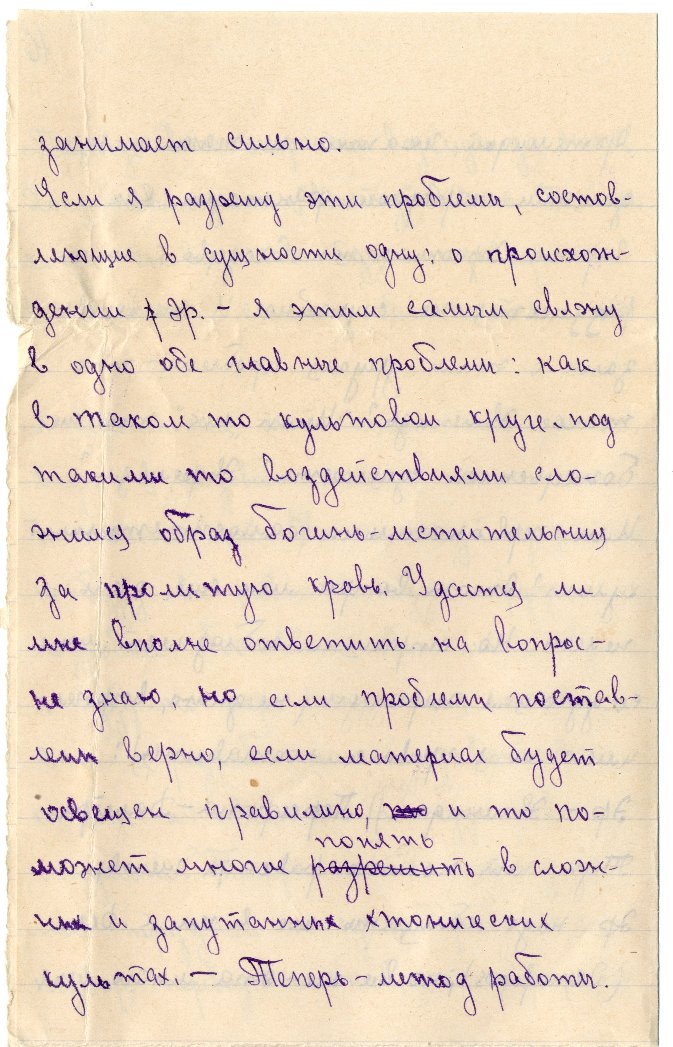 занимает сильно.
Если я разрешу эти проблемы, состов-
ляющие в сущности одну: о происхож-
дении Эр. – я этим самым свяжу
в одно обе главные проблемы: как
в таком то культовом круге под
такими то воздействиями сло-
жился образ богинь-мстительниц
за пролитую кровь. Удастся ли
мне вполне ответить на вопрос –
не знаю, но если проблемы постав-
лены верно, если материал будет
освещен правильно, то и то по-
понять
может многое разрешить в слож-
ных и запутанных хтонических
культах. – Теперь – метод работы.